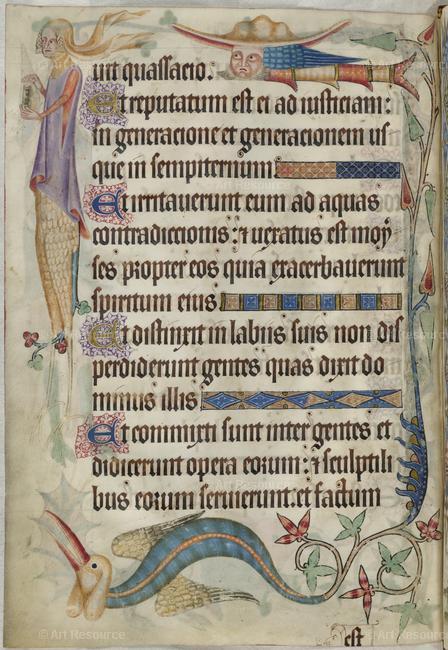 uit quassacio:
Et reputatum est ei ad iusticiam:
in generacione et generacionem us
que in sempiternum
Et irritauerunt eum ad aquas
contradiccionis: ⁊ uexatus est moy
ses propter eos quia exacerbauerunt
spiritum eius
Et distinxit in labiis suis non dis
perdiderunt gentes quas dixit do
minus illis
Et commixti sunt inter gentes et
didicerunt opera eorum: ⁊ sculptili
bus eorum seruierunt: et factum
est
© Art Resource
© Art Resource